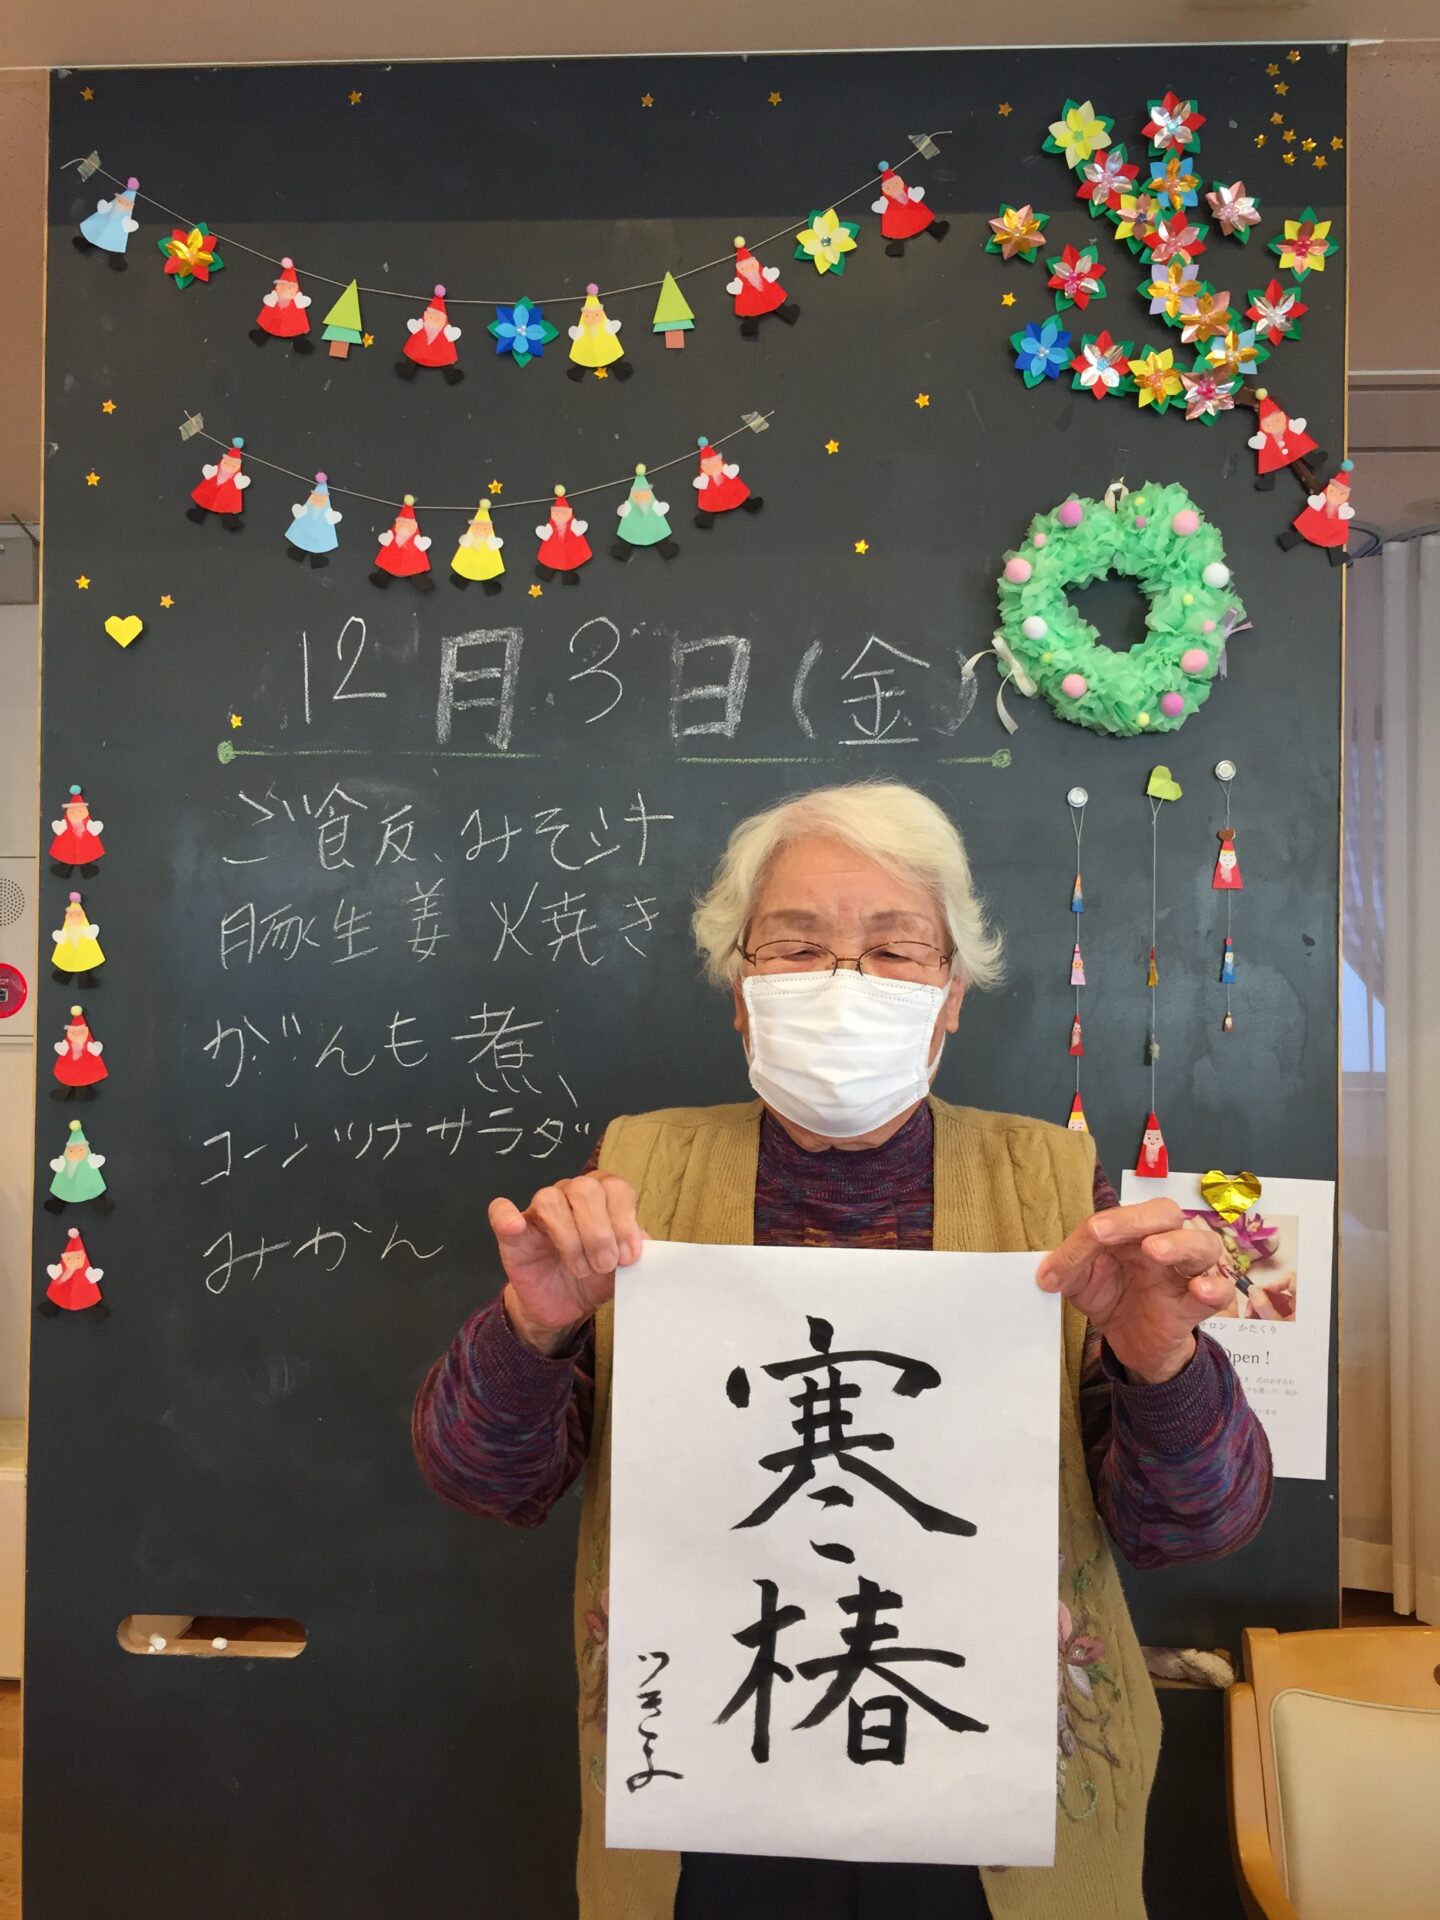 12月3日(金)
ご飯、みそ汁
豚生姜焼き
がんも煮、
コーンツナサラダ
みかん
寒椿
サロン かたくり
Open!